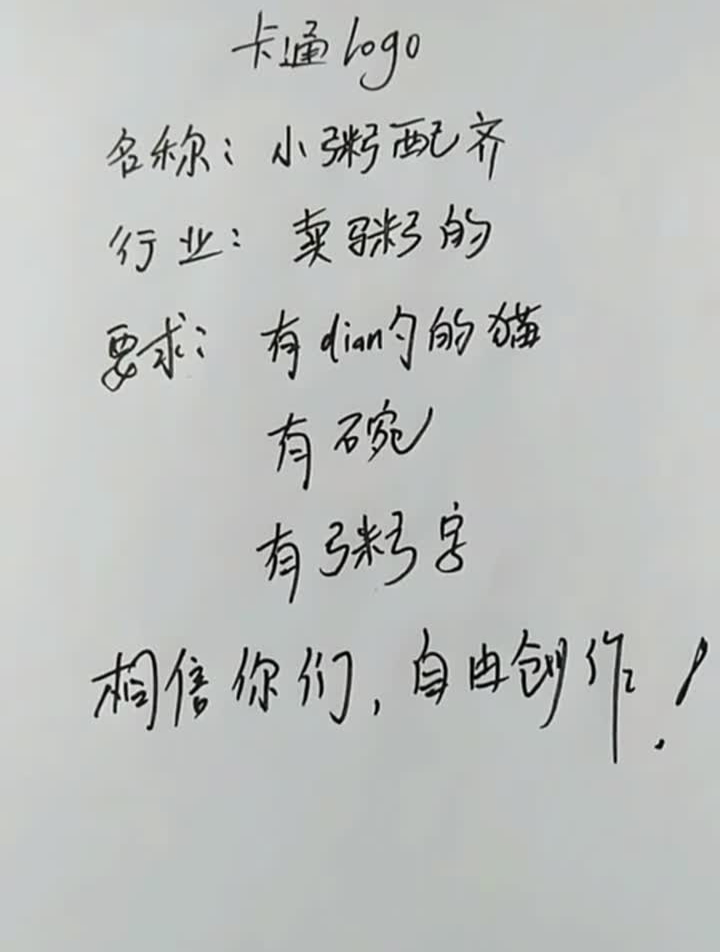 卡通logo
名称：小粥配齐
行业：卖粥的
要求：有dian勺的猫
有碗
有粥字
相信你们，自由创作！